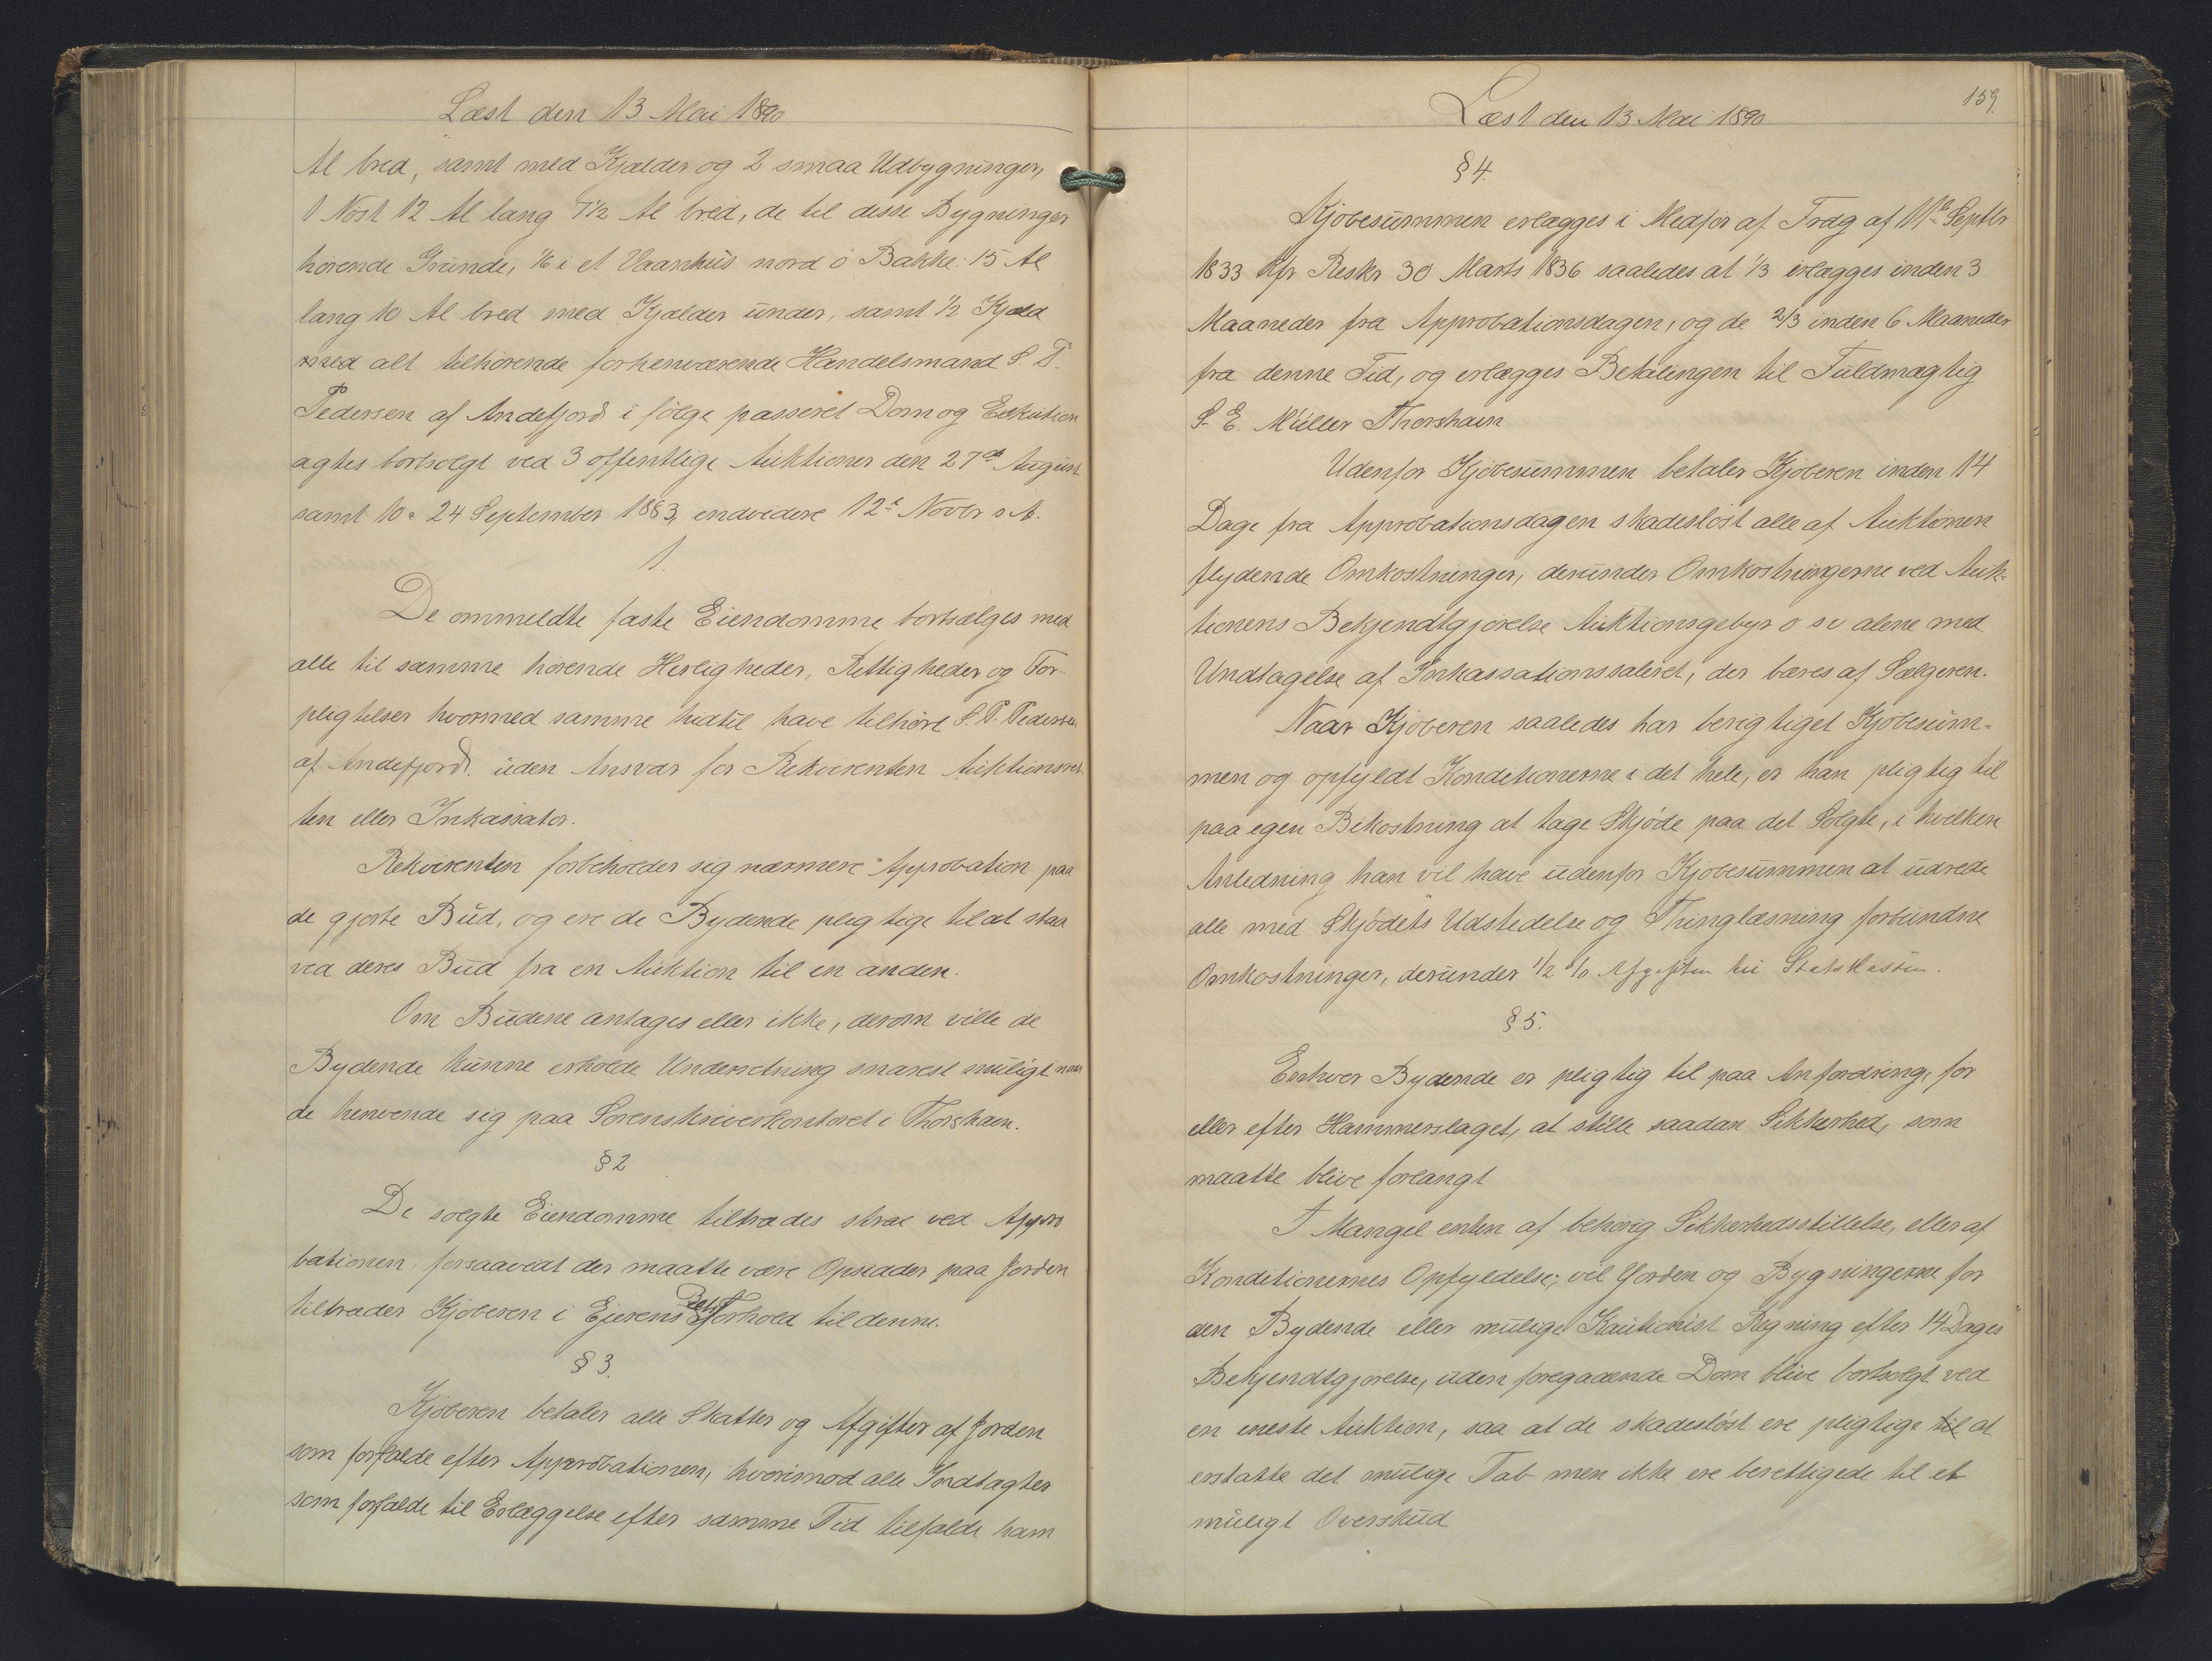 Læst den 13 Mai 1890
Al bred, samt med Kjælder og 2 smaa Udbygninger,
1 Nøst 12 Al lang 7½ Al bred, de til disse Bygninger
hørende Grunde, 1/6 i et Vaanhus nord o Bakke: 15 Al
lang 10 Al bred med Kjælder under, samt ½ Kjæld
med alt tilhørende forhenværende Handelsmand S P.
Pedersen af Andefjord i følge passeret Dom og Exekution
agtes bortsolgt ved 3 offentlige Auktioner den 27de August
samt 10 & 24 September 1883, endvidere 12te Novbr s A.
1.
De ommeldte faste Eiendomme bortsælges med
alle til samme hørende Herligheder, Rettigheder og For-
pligtelser hvormed samme hidtil have tilhørt S. P. Pedersen
af Andefjord. uden Ansvar for Rekvirenten Auktionsret-
ten eller Inkassator.
Rekvirenten forbeholder sig nærmere Approbation paa
de gjorte Bud, og ere de Bydende pligtige til at staa
ved deres Bud fra en Auktion til en anden.
Om Budene antages eller ikke, derom ville de
Bydende kunne erholde Underretning snarest muligt naar
de henvende sig paa Sorenskriverkontoret i Thorshavn.
§ 2
De solgte Eiendomme tiltrædes strax ved Appro
bationen, forsaavidt der maatte være Opsidder paa Jorden
tiltræder Kjøberen i Ejerens Retsforhold til denne.
§ 3.
Kjøberen betaler alle Skatter og Afgifter af Jorden
som forfalde efter Approbationen, hvorimod alle Indtægter
som forfalde til Erlæggelse efter samme Tid tilfalde ham
Læst den 13 Mai 1890
159.
§ 4.
Kjøbesummen erlægges i Medfør af Frdg af 11te Septbr
1833 kfr Reskr 30 Marts 1836 saaledes at 1/3 erlægges inden 3
Maaneder fra Approbationsdagen, og de 2/3 inden 6 Maaneder
fra denne Tid, og erlægges Betalingen til Fuldmægtig
S. E. Müller Thorshavn
Udenfor Kjøbesummen betaler Kjøberen inden 14
Dage fra Approbationsdagen skadesløst alle af Auktionen
flydende Omkostninger, derunder Omkostningerne ved Auk-
tionens Bekjendtgjørelse Auktionsgebyr o s v alene med
Undtagelse af Inkassationssaleret, der bæres af Sælgeren.
Naar Kjøberen saaledes har berigtiget Kjøbesum-
men og opfyldt Konditionerne i det hele, er han pligtig til
paa egen Bekostning at tage Skjøde paa det Solgte, i hvilken
Anledning han vil have udenfor Kjøbesummen at udrede
alle med Skjødets Udstedelse og Thinglæsning forbundne
Omkostninger, derunder ½ % Afgiften til Statskassen.
§ 5.
Enhver Bydende er pligtig til paa Anfordring, før
eller efter Hammerslaget, at stille saadan Sikkerhed, som
maatte blive forlangt
I Mangel enten af behørig Sikkerhedsstillelse, eller af
Konditionernes Opfyldelse; vil Jorden og Bygningerne for
den Bydende eller mulige Kautionist Regning efter 14 Dages
Bekjendtgjørelse, uden foregaaende Dom blive bortsolgt ved
en eneste Auktion, saa at de skadesløst ere pligtige til at
erstatte det mulige Tab men ikke ere berettigede til et
muligt Overskud